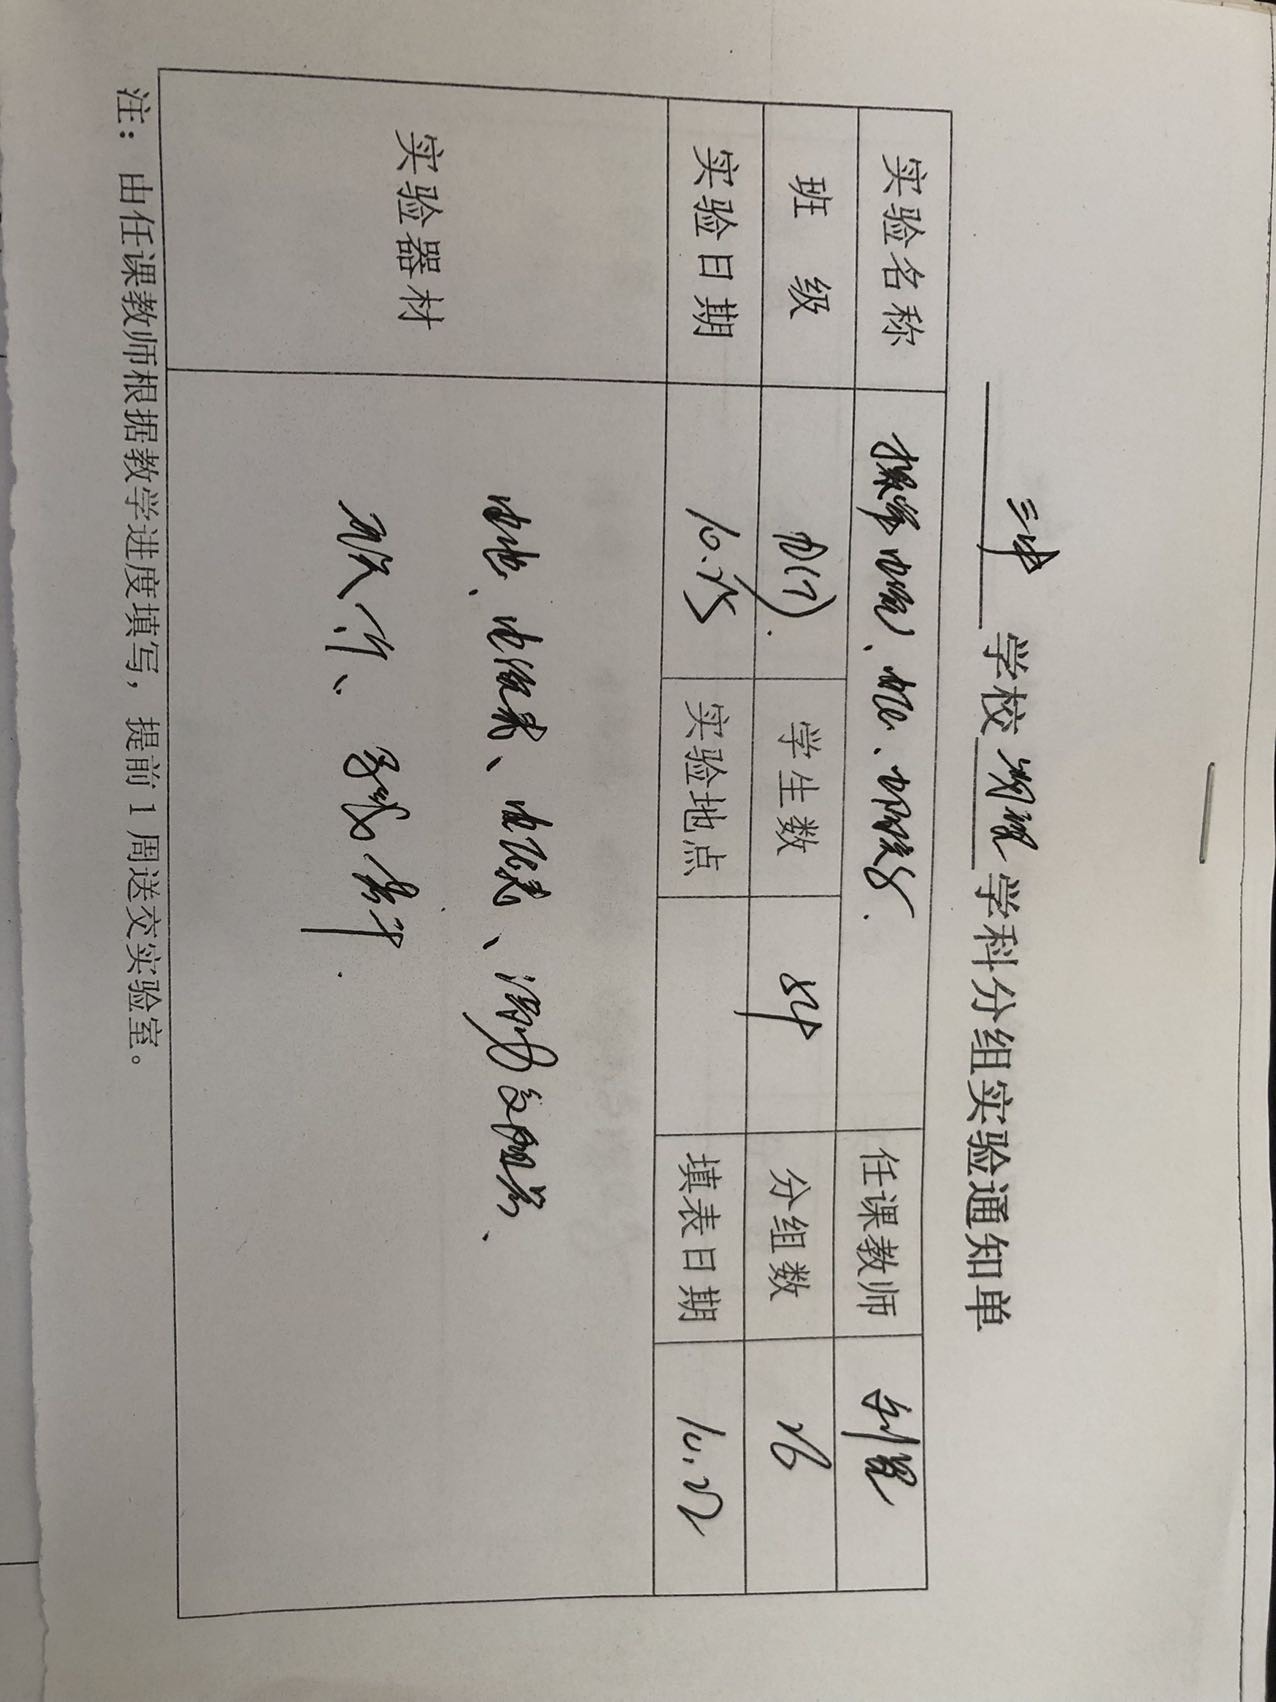 三中学校物理学科分组实验通知单
实验名称 探究电流、电压、电阻关系. 任课教师
班级 九(7). 学生数 54 分组数 26
实验日期 10.25 实验地点 填表日期 10.22
实验器材
电池、电流表、电压表、滑动变阻器、
开关、导线若干.
注：由任课教师根据教学进度填写，提前1周送交实验室。